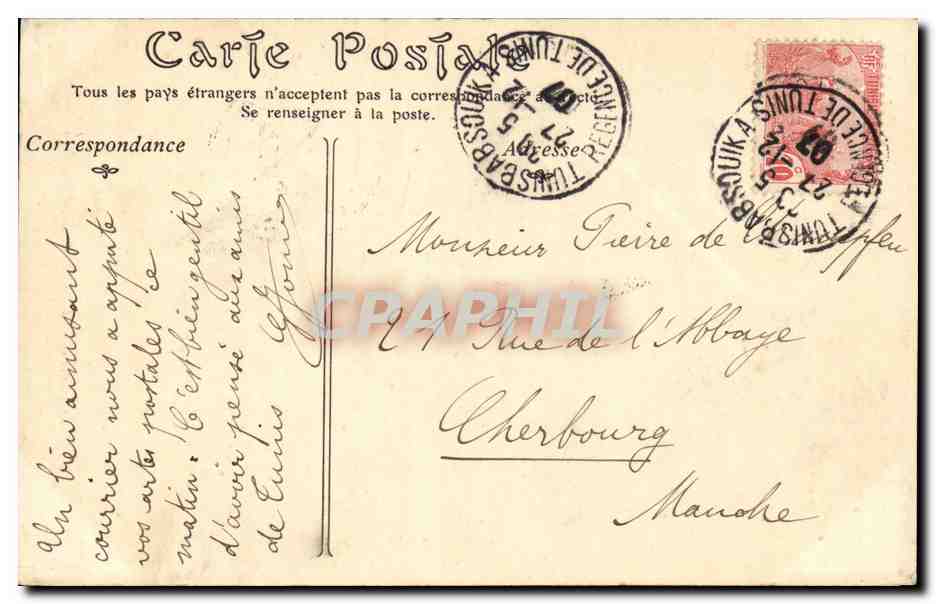 Carte Postale
Tous les pays étrangers n'acceptent pas la correspondance au recto
Se renseigner à la poste.
Correspondance
Adresse
TUNIS BAB-SOUIKA
REGENCE DE TUNIS
27 -5
07
TUNIS BAB-SOUIKA
REGENCE DE TUNIS
23 5 -12
27
07
Un bien amusant
courrier nous a apporté
vos cartes postales ce
matin. C'est bien gentil
d'avoir pensé aux amis
de Tunis
Monsieur Pierre de
21 Rue de l'Abbaye
Cherbourg
Manche
CPAPHIL